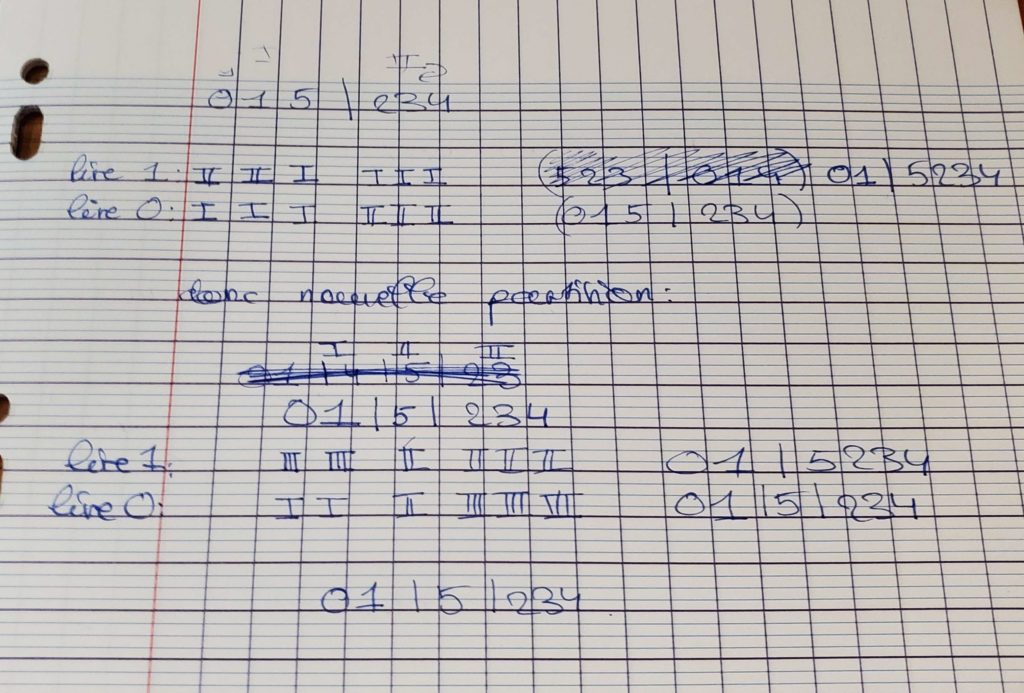 I II
0 1 5 | 2 3 4
lire 1: II II I I I I 01 | 5234
lire 0: I I I II II II (015 | 234)
donc nouvelle partition:
I II III
01 | 5 | 234
lire 1: III III II II II II 01 | 5234
lire 0: I I II III III III 01 | 5 | 234
01 | 5 | 234